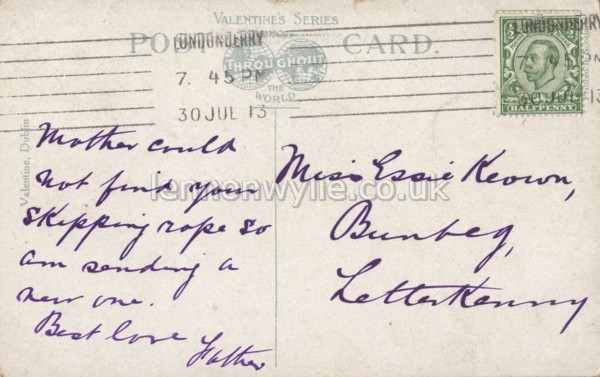 VALENTINES SERIES
POST CARD.
FAMOUS
THROUGHOUT
THE
WORLD
LONDONDERRY
7. 45 PM
30 JUL 13
LONDONDERRY
5 PM
30 JUL 13
HALFPENNY
Valentine, Dublin
lennonwylie.co.uk
Mother could
not find your
skipping rope so
am sending a
new one.
Best love
Father
Miss Essie Keown,
Bunbeg,
Letterkenny